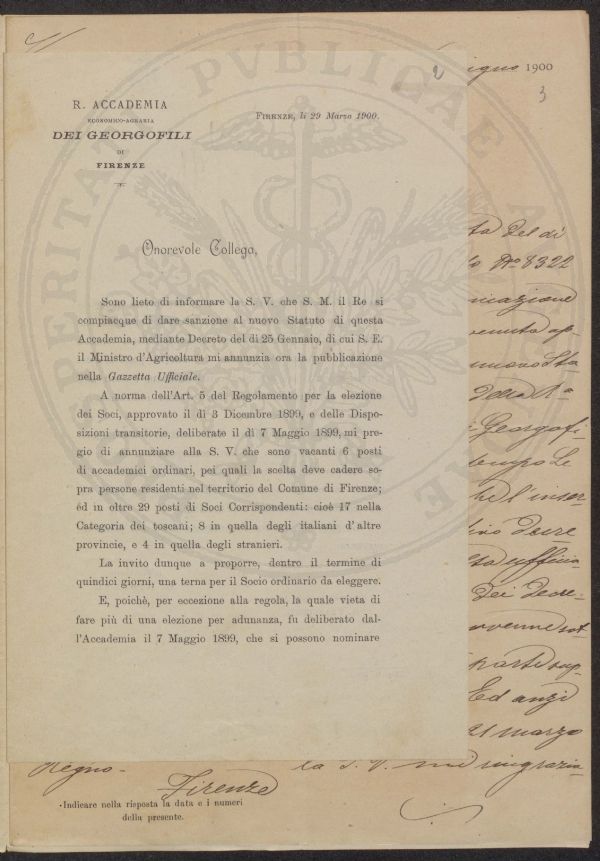 2
igno 1900
3
R. ACCADEMIA
ECONOMICO-AGRARIA
DEI GEORGOFILI
DI
FIRENZE
FIRENZE, li 29 Marzo 1900.
Onorevole Collega,
Sono lieto di informare la S. V. che S. M. il Re si
compiacque di dare sanzione al nuovo Statuto di questa
Accademia, mediante Decreto del dì 25 Gennaio, di cui S. E.
il Ministro d'Agricoltura mi annunzia ora la pubblicazione
nella Gazzetta Ufficiale.
A norma dell'Art. 5 del Regolamento per la elezione
dei Soci, approvato il dì 3 Dicembre 1899, e delle Dispo-
sizioni transitorie, deliberate il dì 7 Maggio 1899, mi pre-
gio di annunziare alla S. V. che sono vacanti 6 posti
di accademici ordinari, pei quali la scelta deve cadere so-
pra persone residenti nel territorio del Comune di Firenze;
ed in oltre 29 posti di Soci Corrispondenti: cioè 17 nella
Categoria dei toscani; 8 in quella degli italiani d'altre
provincie, e 4 in quella degli stranieri.
La invito dunque a proporre, dentro il termine di
quindici giorni, una terna per il Socio ordinario da eleggere.
E, poichè, per eccezione alla regola, la quale vieta di
fare più di una elezione per adunanza, fu deliberato dal-
l'Accademia il 7 Maggio 1899, che si possono nominare
ta del dì
No 8322
nicazione
venuta ap
nuovo Sta
Georgofi
tempo Le
he l'inser
Decre
ufficia
Dei Decre
ovenne
parte sup
Ed anzi
21 marzo
Regno.
la S. V. mi ringrazia
Firenze
Indicare nella risposta la data e i numeri
della presente.